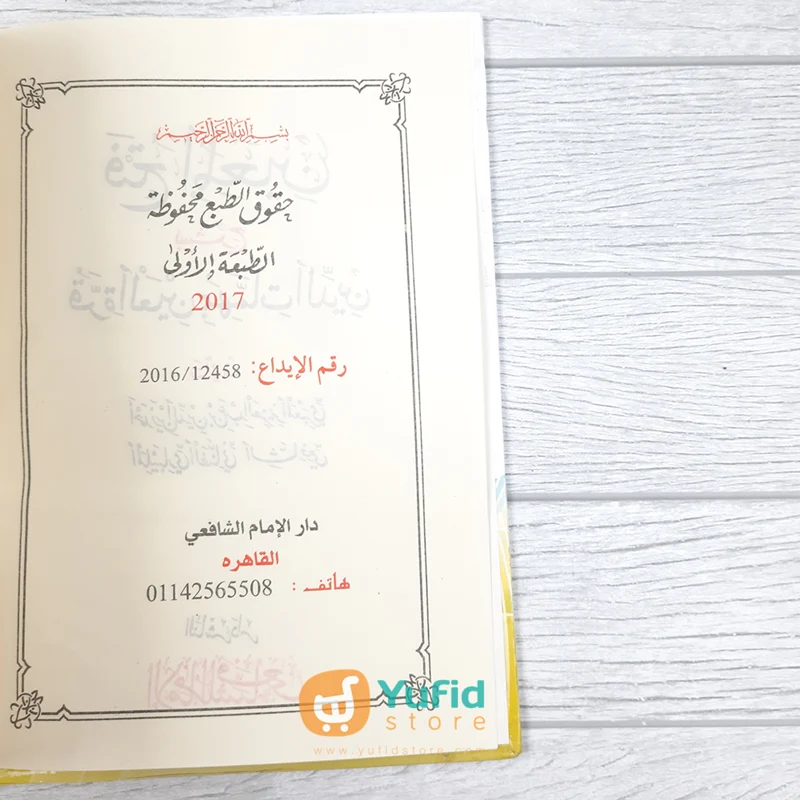 بِسْمِ اللهِ الرَّحْمٰنِ الرَّحِيْمِ
حقُوق الطّبْع مَحفُوظة
الطّبْعَة الأوْلىٰ
2017
رقم الإيداع: 2016/12458
دار الإمام الشافعي
القاهره
هاتف : 01142565508
Yufid
store
www.yufidstore.com